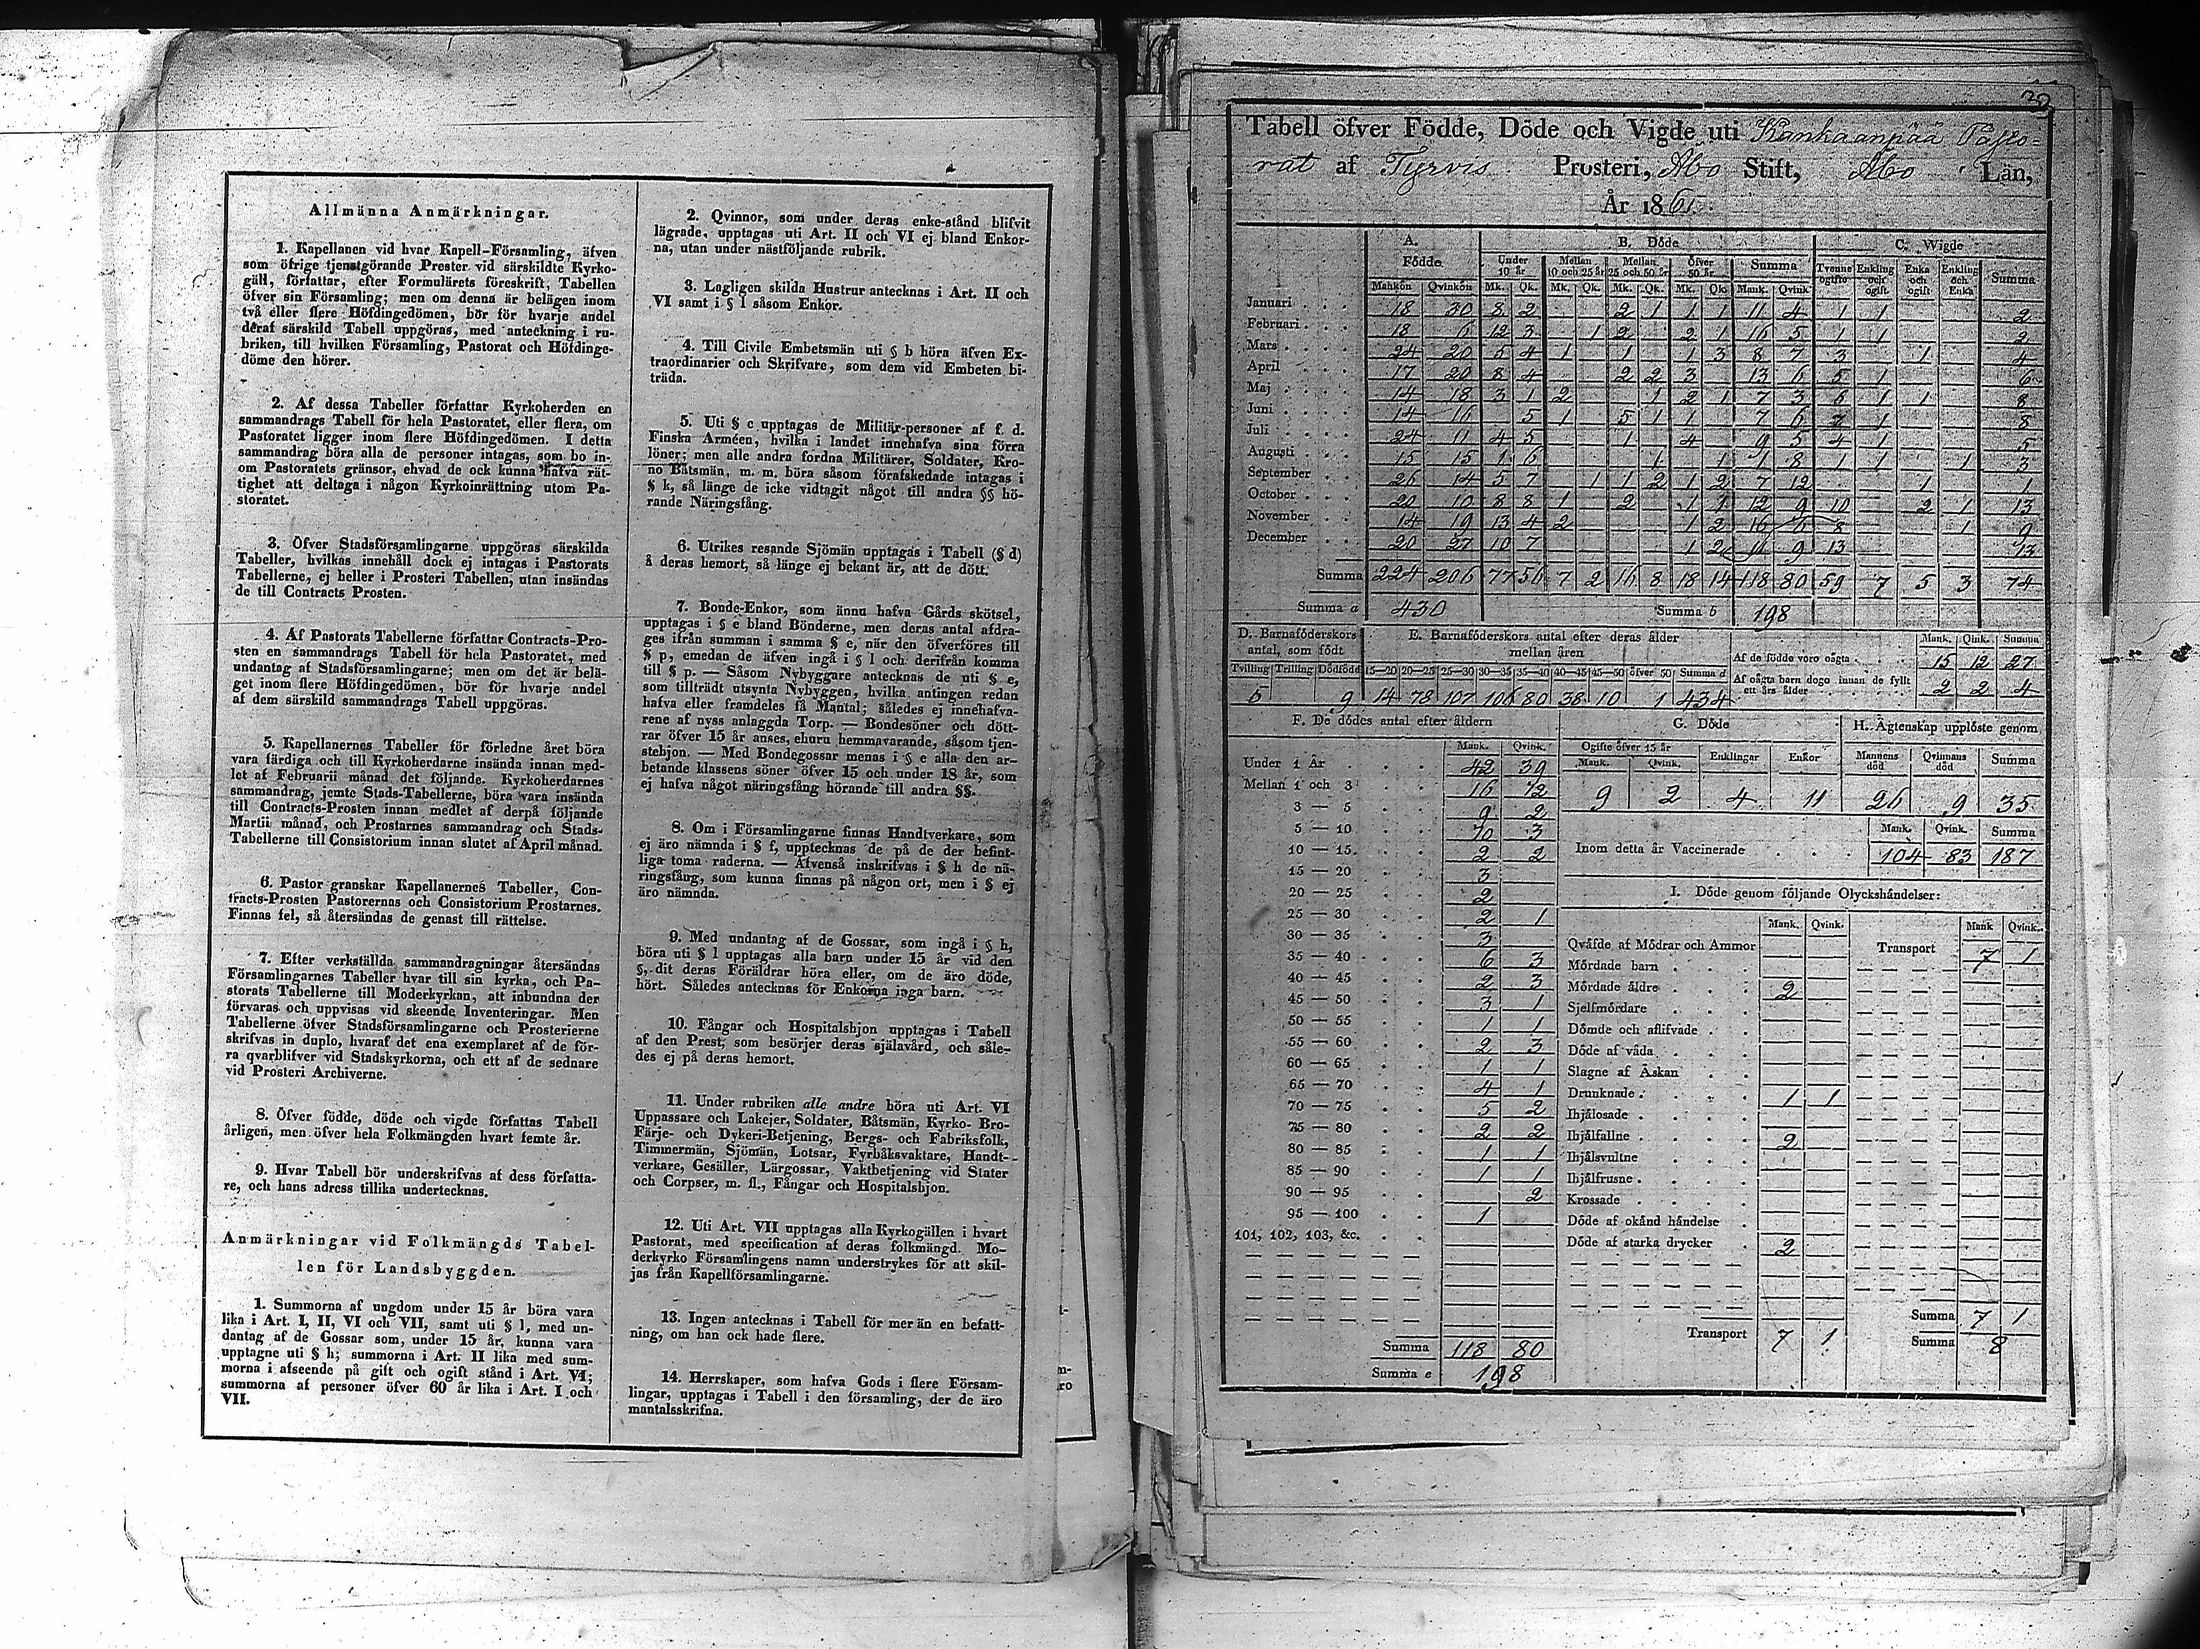 Allmänna Anmärkningar.
1. Kapellanen vid hvar Kapell-Församling, äfven
som öfrige tjenstgörande Prester vid särskildte Kyrko-
gäll, författar, efter Formulärets föreskrift, Tabellen
öfver sin Församling; men om denna är belägen inom
två eller flere Höfdingedömen, bör för hvarje andel
deraf särskild Tabell uppgöras, med anteckning i ru-
briken, till hvilken Församling, Pastorat och Höfdinge-
döme den hörer.
2. Af dessa Tabeller författar Kyrkoherden en
sammandrags Tabell för hela Pastoratet, eller flera, om
Pastoratet ligger inom flere Höfdingedömen. I detta
sammandrag böra alla de personer intagas, som bo in-
om Pastoratets gränsor, ehvad de ock kunna hafva rät-
tighet att deltaga i någon Kyrkoinrättning utom Pa-
storatet.
3. Öfver Stadsförsamlingarne uppgöras särskilda
Tabeller, hvilkas innehåll dock ej intagas i Pastorats
Tabellerne, ej heller i Prosteri Tabellen, utan insändas
de till Contracts Prosten.
4. Af Pastorats Tabellerne författar Contracts-Pro-
sten en sammandrags Tabell för hela Pastoratet, med
undantag af Stadsförsamlingarne; men om det är belä-
get inom flere Höfdingedömen, bör för hvarje andel
af dem särskild sammandrags Tabell uppgöras.
5. Kapellanernes Tabeller för förledne året böra
vara färdiga och till Kyrkoherdarne insända innan med-
let af Februarii månad det följande. Kyrkoherdarnes
sammandrag, jemte Stads-Tabellerne, böra vara insända
till Contracts-Prosten innan medlet af derpå följande
Martii månad, och Prostarnes sammandrag och Stads-
Tabellerne till Consistorium innan slutet af April månad.
6. Pastor granskar Kapellanernes Tabeller, Con-
tracts-Prosten Pastorernas och Consistorium Prostarnes.
Finnas fel, så återsändas de genast till rättelse.
7. Efter verkställda sammandragningar återsändas
Församlingarnes Tabeller hvar till sin kyrka, och Pa-
storats Tabellerne till Moderkyrkan, att inbundna der
förvaras och uppvisas vid skeende Inventeringar. Men
Tabellerne öfver Stadsförsamlingarne och Prosterierne
skrifvas in duplo, hvaraf det ena exemplaret af de för-
ra qvarblifver vid Stadskyrkorna, och ett af de sednare
vid Prosteri Archiverne.
8. Öfver födde, döde och vigde författas Tabell
årligen, men öfver hela Folkmängden hvart femte år.
9. Hvar Tabell bör underskrifvas af dess författa-
re, och hans adress tillika undertecknas.
Anmärkningar vid Folkmängds Tabel-
len för Landsbyggden.
1. Summorna af ungdom under 15 år böra vara
lika i Art. I, II, VI och VII, samt uti § l, med un-
dantag af de Gossar som, under 15 år, kunna vara
upptagne uti § h; summorna i Art. II lika med sum-
morna i afseende på gift och ogift stånd i Art. VI;
summorna af personer öfver 60 år lika i Art. I och
VII.
2. Qvinnor, som under deras enke-stånd blifvit
lägrade, upptagas uti Art. II och VI ej bland Enkor-
na, utan under nästföljande rubrik.
3. Lagligen skilda Hustrur antecknas i Art. II och
VI samt i § l såsom Enkor.
4. Till Civile Embetsmän uti § b höra äfven Ex-
traordinarier och Skrifvare, som dem vid Embeten bi-
träda.
5. Uti § c upptagas de Militär-personer af f. d.
Finska Arméen, hvilka i landet innehafva sina förra
löner; men alle andra fordna Militärer, Soldater, Kro-
no Båtsmän, m. m. böra såsom förafskedade intagas i
§ k, så länge de icke vidtagit något till andra §§ hö-
rande Näringsfång.
6. Utrikes resande Sjömän upptagas i Tabell (§ d)
å deras hemort, så länge ej bekant är, att de dött.
7. Bonde-Enkor, som ännu hafva Gårds skötsel,
upptagas i § e bland Bönderne, men deras antal afdra-
ges ifrån summan i samma § e, när den öfverföres till
§ p, emedan de äfven ingå i § l och derifrån komma
till § p. — Såsom Nybyggare antecknas de uti § e,
som tillträdt utsynta Nybyggen, hvilka antingen redan
hafva eller framdeles få Mantal; således ej innehafva-
rene af nyss anlaggda Torp. — Bondesöner och dött-
rar öfver 15 år anses, ehuru hemmavarande, såsom tjen-
stehjon. — Med Bondegossar menas i § e alla den ar-
betande klassens söner öfver 15 och under 18 år, som
ej hafva något näringsfång hörande till andra §§.
8. Om i Församlingarne finnas Handtverkare, som
ej äro nämnda i § f, upptecknas de på de der befint-
liga toma raderna. — Äfvenså inskrifvas i § h de nä-
ringsfång, som kunna finnas på någon ort, men i § ej
äro nämnda.
9. Med undantag af de Gossar, som ingå i § h,
böra uti § l upptagas alla barn under 15 år vid den
§, dit deras Föräldrar höra eller, om de äro döde,
hört. Således antecknas för Enkorna inga barn.
10. Fångar och Hospitalshjon upptagas i Tabell
af den Prest, som besörjer deras själavård, och såle-
des ej på deras hemort.
11. Under rubriken alle andre höra uti Art. VI
Uppassare och Lakejer, Soldater, Båtsmän, Kyrko- Bro-
Färje- och Dykeri-Betjening, Bergs- och Fabriksfolk,
Timmermän, Sjömän, Lotsar, Fyrbåksvaktare, Handt-
verkare, Gesäller, Lärgossar, Vaktbetjening vid Slater
och Corpser, m. fl., Fångar och Hospitalshjon.
12. Uti Art. VII upptagas alla Kyrkogällen i hvart
Pastorat, med specification af deras folkmängd. Mo-
derkyrko Församlingens namn understrykes för att skil-
jas från Kapellförsamlingarne.
13. Ingen antecknas i Tabell för mer än en befatt-
ning, om han ock hade flere.
14. Herrskaper, som hafva Gods i flere Försam-
lingar, upptagas i Tabell i den församling, der de äro
mantalsskrifna.
Tabell öfver Födde, Döde och Vigde uti Kankaanpää Pasto-
rat af Tyrvis Prosteri, Åbo Stift, Åbo Län,
År 1861
A. Födde B. Döde C. Wigde
Under 10 år Mellan 10 och 25 år Mellan 25 och 50 år Öfver 50 år Summa Tvenne ogifte Enkling och ogift Enka och ogift Enkling och Enka Summa
Mankön Qvinkön Mk. Qk. Mk. Qk. Mk. Qk. Mk. Qk. Mank. Qvink.
Januari 18 30 8 2 2 1 1 1 11 4 1 1 2
Februari 18 6 12 3 1 2 2 1 16 5 1 1 2
Mars 24 20 5 4 1 1 1 3 8 7 3 1 4
April 17 20 8 4 2 2 3 13 6 5 1 6
Maj 14 18 3 1 2 1 2 1 7 3 6 1 1 8
Juni 14 16 5 1 5 1 1 7 6 7 1 8
Juli 24 11 4 5 1 4 9 5 4 1 5
Augusti 15 15 1 6 1 1 1 8 1 1 1 3
September 26 14 5 7 1 1 2 1 2 7 12 1 1
October 20 10 8 8 1 2 1 1 12 9 10 2 1 13
November 14 19 13 4 2 1 2 16 6 8 1 9
December 20 27 10 7 1 2 11 9 13 13
Summa 224 206 77 56 7 2 16 8 18 14 118 80 59 7 5 3 74
Summa a 430 Summa b 198
D. Barnaföderskors antal, som födt
Tvilling Trilling Dödfödd
5 9
E. Barnaföderskors antal efter deras ålder
mellan åren
15—20 20—25 25—30 30—35 35—40 40—45 45—50 öfver 50 Summa d
14 78 107 106 80 38 10 1 434
Mank. Qink. Summa
Af de födde voro oägta 15 12 27
Af oägta barn dogo innan de fyllt
ett års ålder 2 2 4
F. De dödes antal efter åldern
Mank. Qvink.
Under 1 År 42 39
Mellan 1 och 3 16 12
3 — 5 9 2
5 — 10 10 3
10 — 15 2 2
15 — 20 3
20 — 25 2
25 — 30 2 1
30 — 35 3
35 — 40 6 3
40 — 45 2 3
45 — 50 3 1
50 — 55 1 1
55 — 60 2 3
60 — 65 1 1
65 — 70 4 1
70 — 75 5 2
75 — 80 2 2
80 — 85 1 1
85 — 90 1 1
90 — 95 2
95 — 100 1
101, 102, 103, &c.
Summa 118 80
Summa e 198
G. Döde
Ogifte öfver 15 år Enklingar Enkor
Mank. Qvink.
9 2 4 11
H. Ägtenskap upplöste genom
Mannens död Qvinnans död Summa
26 9 35
Mank. Qvink. Summa
Inom detta år Vaccinerade 104 83 187
I. Döde genom följande Olyckshändelser:
Mank. Qvink.
Qväfde af Mödrar och Ammor
Mördade barn
Mördade äldre 2
Sjelfmördare
Dömde och aflifvade
Döde af våda
Slagne af Åskan
Drunknade 1 1
Ihjälosade
Ihjälfallne 2
Ihjälsvultne
Ihjälfrusne
Krossade
Döde af okänd händelse
Döde af starka drycker 2
Transport 7 1
Mank Qvink.
Transport 7 1
Summa 7 1
Summa 8